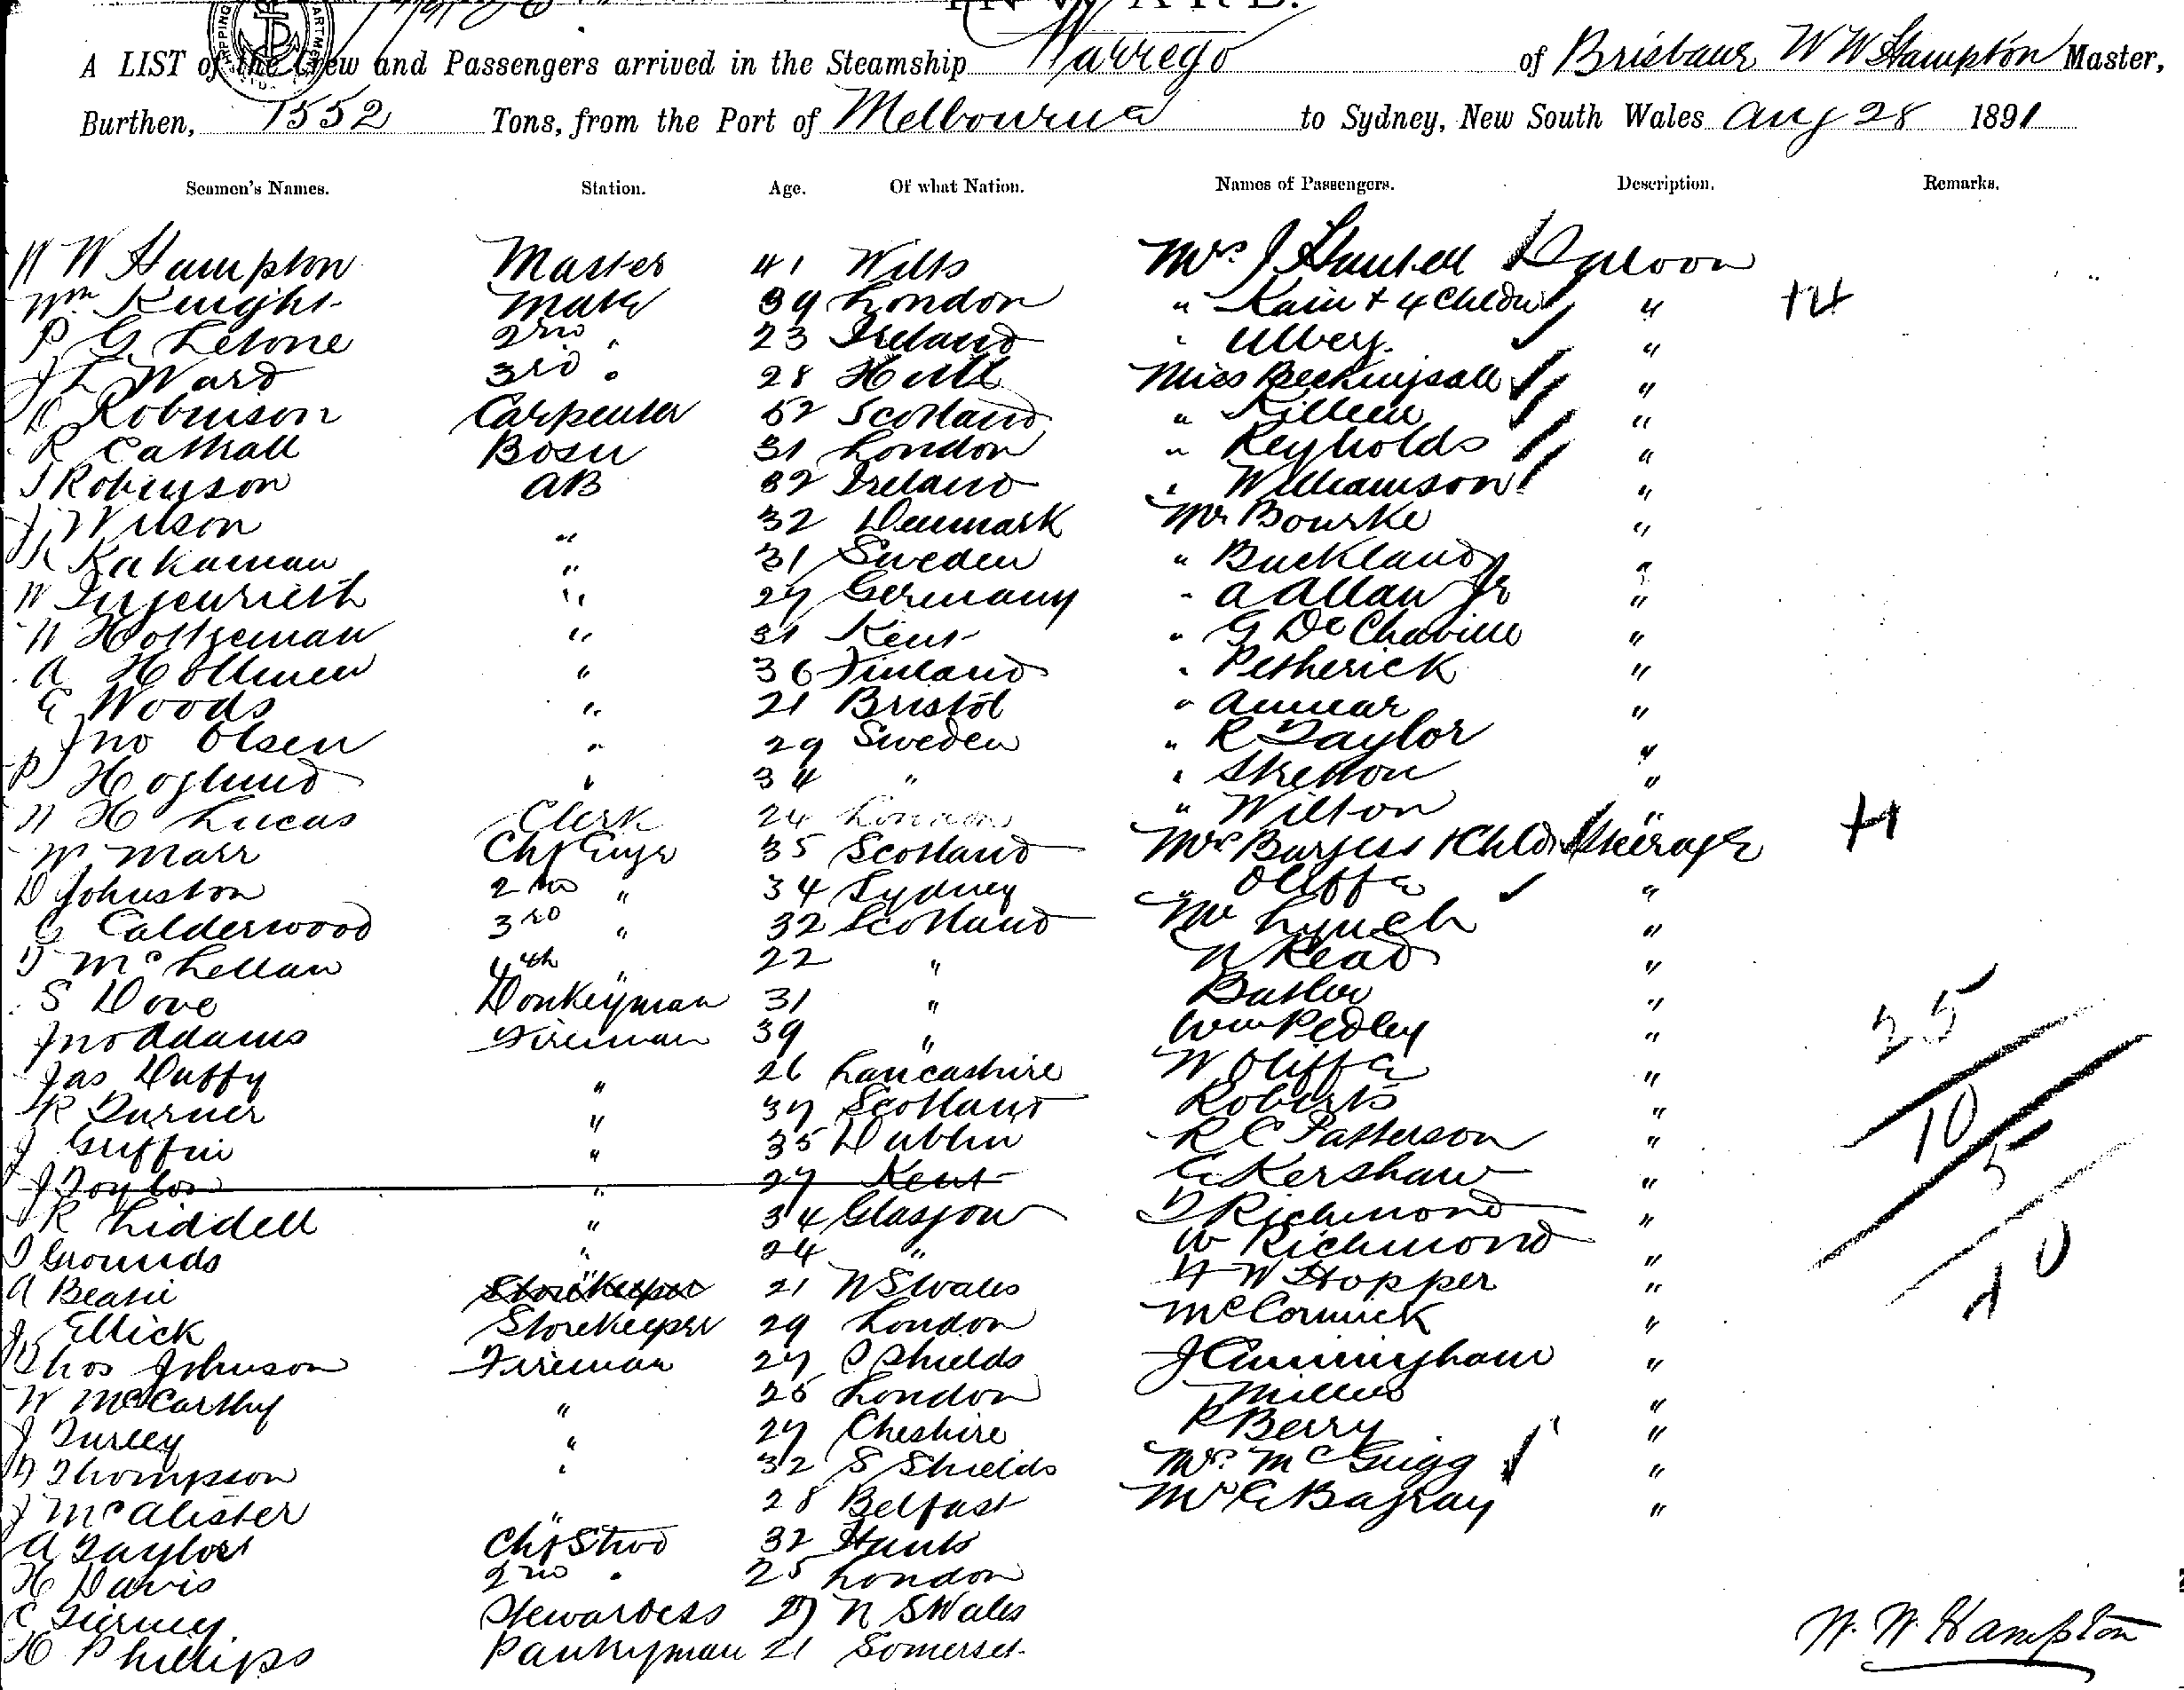 INWARD.
A LIST of the Crew and Passengers arrived in the Steamship Warrego of Brisbane W W Hampton Master,
Burthen, 1552 Tons, from the Port of Melbourne to Sydney, New South Wales Aug 28 1891
Seamen's Names. Station. Age. Of what Nation. Names of Passengers. Description. Remarks.
W W Hampton Master 41 Wilts Mrs J Saloon
Wm Knight Mate 39 London " Kain + 4 Childn " 14
P G 2nd " 23 Ireland " Ulbery "
J L Ward 3rd " 28 Hull Miss Beckingsall "
D Robinson Carpenter 52 Scotland " Killeen "
R Cathall Bosn 31 London " Reynolds "
J Robinson AB 32 Ireland " Williamson "
J Wilson " 32 Denmark Mr Bourke "
K Kakaman " 31 Sweden " Buckland "
W " 27 Germany " A Allan Jr "
W Holtzeman " 31 Kent " G De Chaville "
A Hollmen " 36 Finland " Petherick "
E Woods " 21 Bristol " "
Jno Olsen " 29 Sweden " R Taylor "
P Hoglund " 34 " " Stretton "
W H Lucas Clerk 24 London " Wilton "
W Marr Chf Engr 35 Scotland Mrs Burgess 1 Child Steerage 11
D Johnston 2nd " 34 Sydney " Oliffe "
G Calderwood 3rd " 32 Scotland Mr Lynch "
D McLellan 4th " 22 " N Read "
S Dove Donkeyman 31 " Butler "
Jno Adams Fireman 39 " Wm Pedley " 25
Jas Duffy " 26 Lancashire W Oliffe "
R Turner " 37 Scotland Roberts "
J Griffin " 35 Dublin R C Patterson " 10
J Taylor " 27 Kent C Kershaw " 5
R Liddell " 34 Glasgow D Richmond "
J Grounds " 24 " W Richmond "
A Beatie Storekeeper 21 N S Wales W Hopper " 10
J Ellick Storekeeper 29 London McCormick "
Thos Johnson Fireman 27 S Shields J Cunningham "
W McCarthy " 26 London Miller "
J Turley " 27 Cheshire P Berry "
D Thompson " 32 S Shields Mrs McGuigg "
J McAlister " 28 Belfast Mr "
A Taylor Chf Stwd 32 Hants
H Davis 2nd " 25 London
C Tierney Stewardess 27 N S Wales
H Phillips Pantryman 21 Somerset
W. W. Hampton